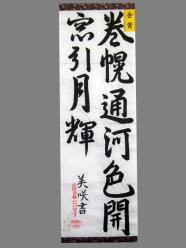 金賞
巻幌通河色開
窓引月輝
美咲書